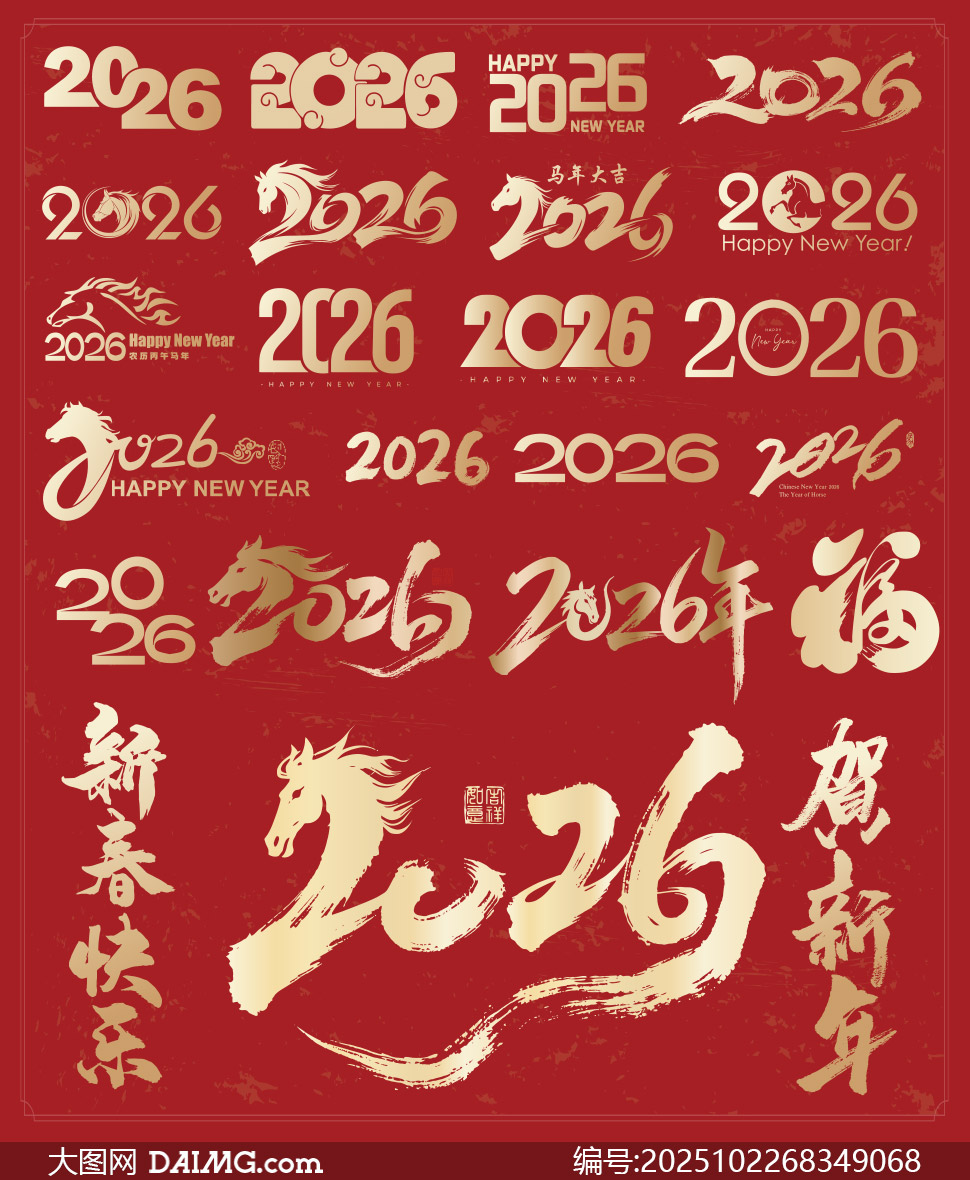 2026
2026
HAPPY
2026
NEW YEAR
2026
2026
2026
马年大吉
2026
2026
Happy New Year!
2026
Happy New Year
农历丙午马年
2026
·HAPPY NEW YEAR·
2026
·HAPPY NEW YEAR·
2026
HAPPY
New Year
2026
HAPPY NEW YEAR
2026
2026
2026
Chinese New Year 2026
The Year of Horse
2026
2026
2026年
福
新春快乐
2026
吉祥如意
贺新年
大图网 DAIMG.com
编号:2025102268349068